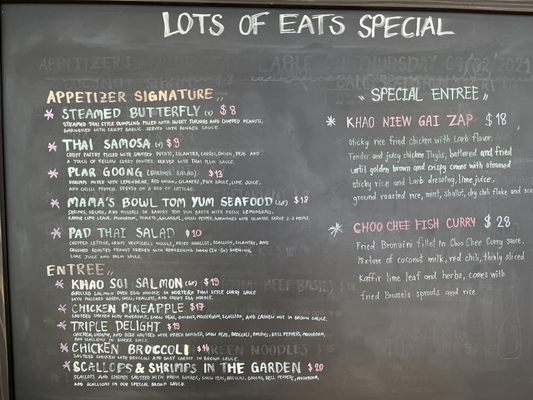 LOTS OF EATS SPECIAL
APPETIZER SIGNATURE
STEAMED BUTTERFLY (V) $8
STEAMED THAI STYLE DUMPLING FILLED WITH SWEET TURNIPS AND CHOPPED PEANUTS,
GARNISHED WITH CRISPY GARLIC. SERVED WITH GINGER SAUCE.
THAI SAMOSA (V) $9
CRISPY PASTRY FILLED WITH SAUTEED POTATO, CILANTRO, CARROT, ONION, PEAS AND
A TOUCH OF YELLOW CURRY POWDER. SERVED WITH THAI PLUM SAUCE.
PLAR GOONG (SHRIMPS SALAD) $13
LEMONGRASS, RED ONION, CILANTRO, FISH SAUCE, LIME JUICE,
AND CHILI PEPPER SERVED ON A BED OF LETTUCE.
MAMA'S BOWL TOM YUM SEAFOOD (GF) $18
SHRIMPS, SQUIDS, AND MUSSELS IN SAVORY TOM YUM BROTH WITH FRESH LEMONGRASS,
KAFFIR LIME LEAVE, MUSHROOM, TOMATO, GALANGAL, CHILI PEPPER, GARNISHED WITH CILANTRO. SERVE 2-3 PEOPLE.
PAD THAI SALAD $10
CHOPPED LETTUCE, CRISPY VERMICELLI NOODLE, FRIED SHALLOT, SCALLION, CILANTRO, AND
CRUSHED ROASTED PEANUT TOSSED WITH REFRESHING DRESSING,
LIME JUICE AND PALM SAUCE.
ENTREE
KHAO SOI SALMON (GF) $19
GRILLED SALMON OVER EGG NOODLE IN NORTHERN THAI STYLE CURRY SAUCE
WITH MUSTARD GREEN, SHALLOT, AND CRISPY EGG NOODLE.
CHICKEN PINEAPPLE $17
SAUTEED CHICKEN WITH PINEAPPLE, SNOW PEAS, ONIONS, MUSHROOM, SCALLION, AND CASHEW NUT IN BROWN SAUCE.
TRIPLE DELIGHT $19
CHICKEN, SHRIMP, AND BEEF SAUTEED WITH FRESH GINGER, SNOW PEAS, BROCCOLI, ONIONS, BELL PEPPERS, MUSHROOM,
AND SCALLIONS IN GINGER SAUCE.
CHICKEN BROCCOLI $16
SAUTEED CHICKEN WITH BROCCOLI AND BABY CARROT IN BROWN SAUCE.
SCALLOPS & SHRIMPS IN THE GARDEN $20
SCALLOPS AND SHRIMPS SAUTEED WITH FRESH GINGER, SNOW PEAS, BROCCOLI, ONIONS, BELL PEPPERS, MUSHROOM,
AND SCALLIONS IN OUR SPECIAL BROWN SAUCE.
"SPECIAL ENTREE"
KHAO NIEW GAI ZAP $18
sticky rice fried chicken with Larb flavor.
Tender and juicy chicken thighs, battered and fried
until golden brown and crispy comes with steamed
sticky rice and Larb dressing, lime juice,
ground roasted rice, mint, shallot, dry chili flake and
CHOO CHEE FISH CURRY $28
Fried Bronzini fillet in Choo Chee Curry sauce,
mixture of coconut milk, red chili, thinly sliced
Kaffir lime leaf and herbs, comes with
fried Brussels sprouts and rice